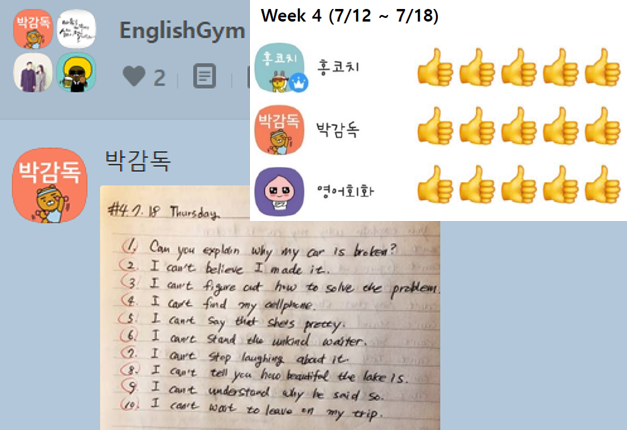 박감독
EnglishGym
2
박감독
박감독
#4 7. 18 Thursday
1. Can you explain why my car is broken?
2. I can't believe I made it.
3. I can't figure out how to solve the problem.
4. I can't find my cellphone.
5. I can't say that she's pretty.
6. I can't stand the unkind waiter.
7. I can't stop laughing about it
8. I can't tell you how beautiful the lake is.
9. I can't understand why he said so.
10. I can't wait to leave on my trip.
Week 4 (7/12 ~ 7/18)
홍코치
홍코치
박감독
박감독
영어회화